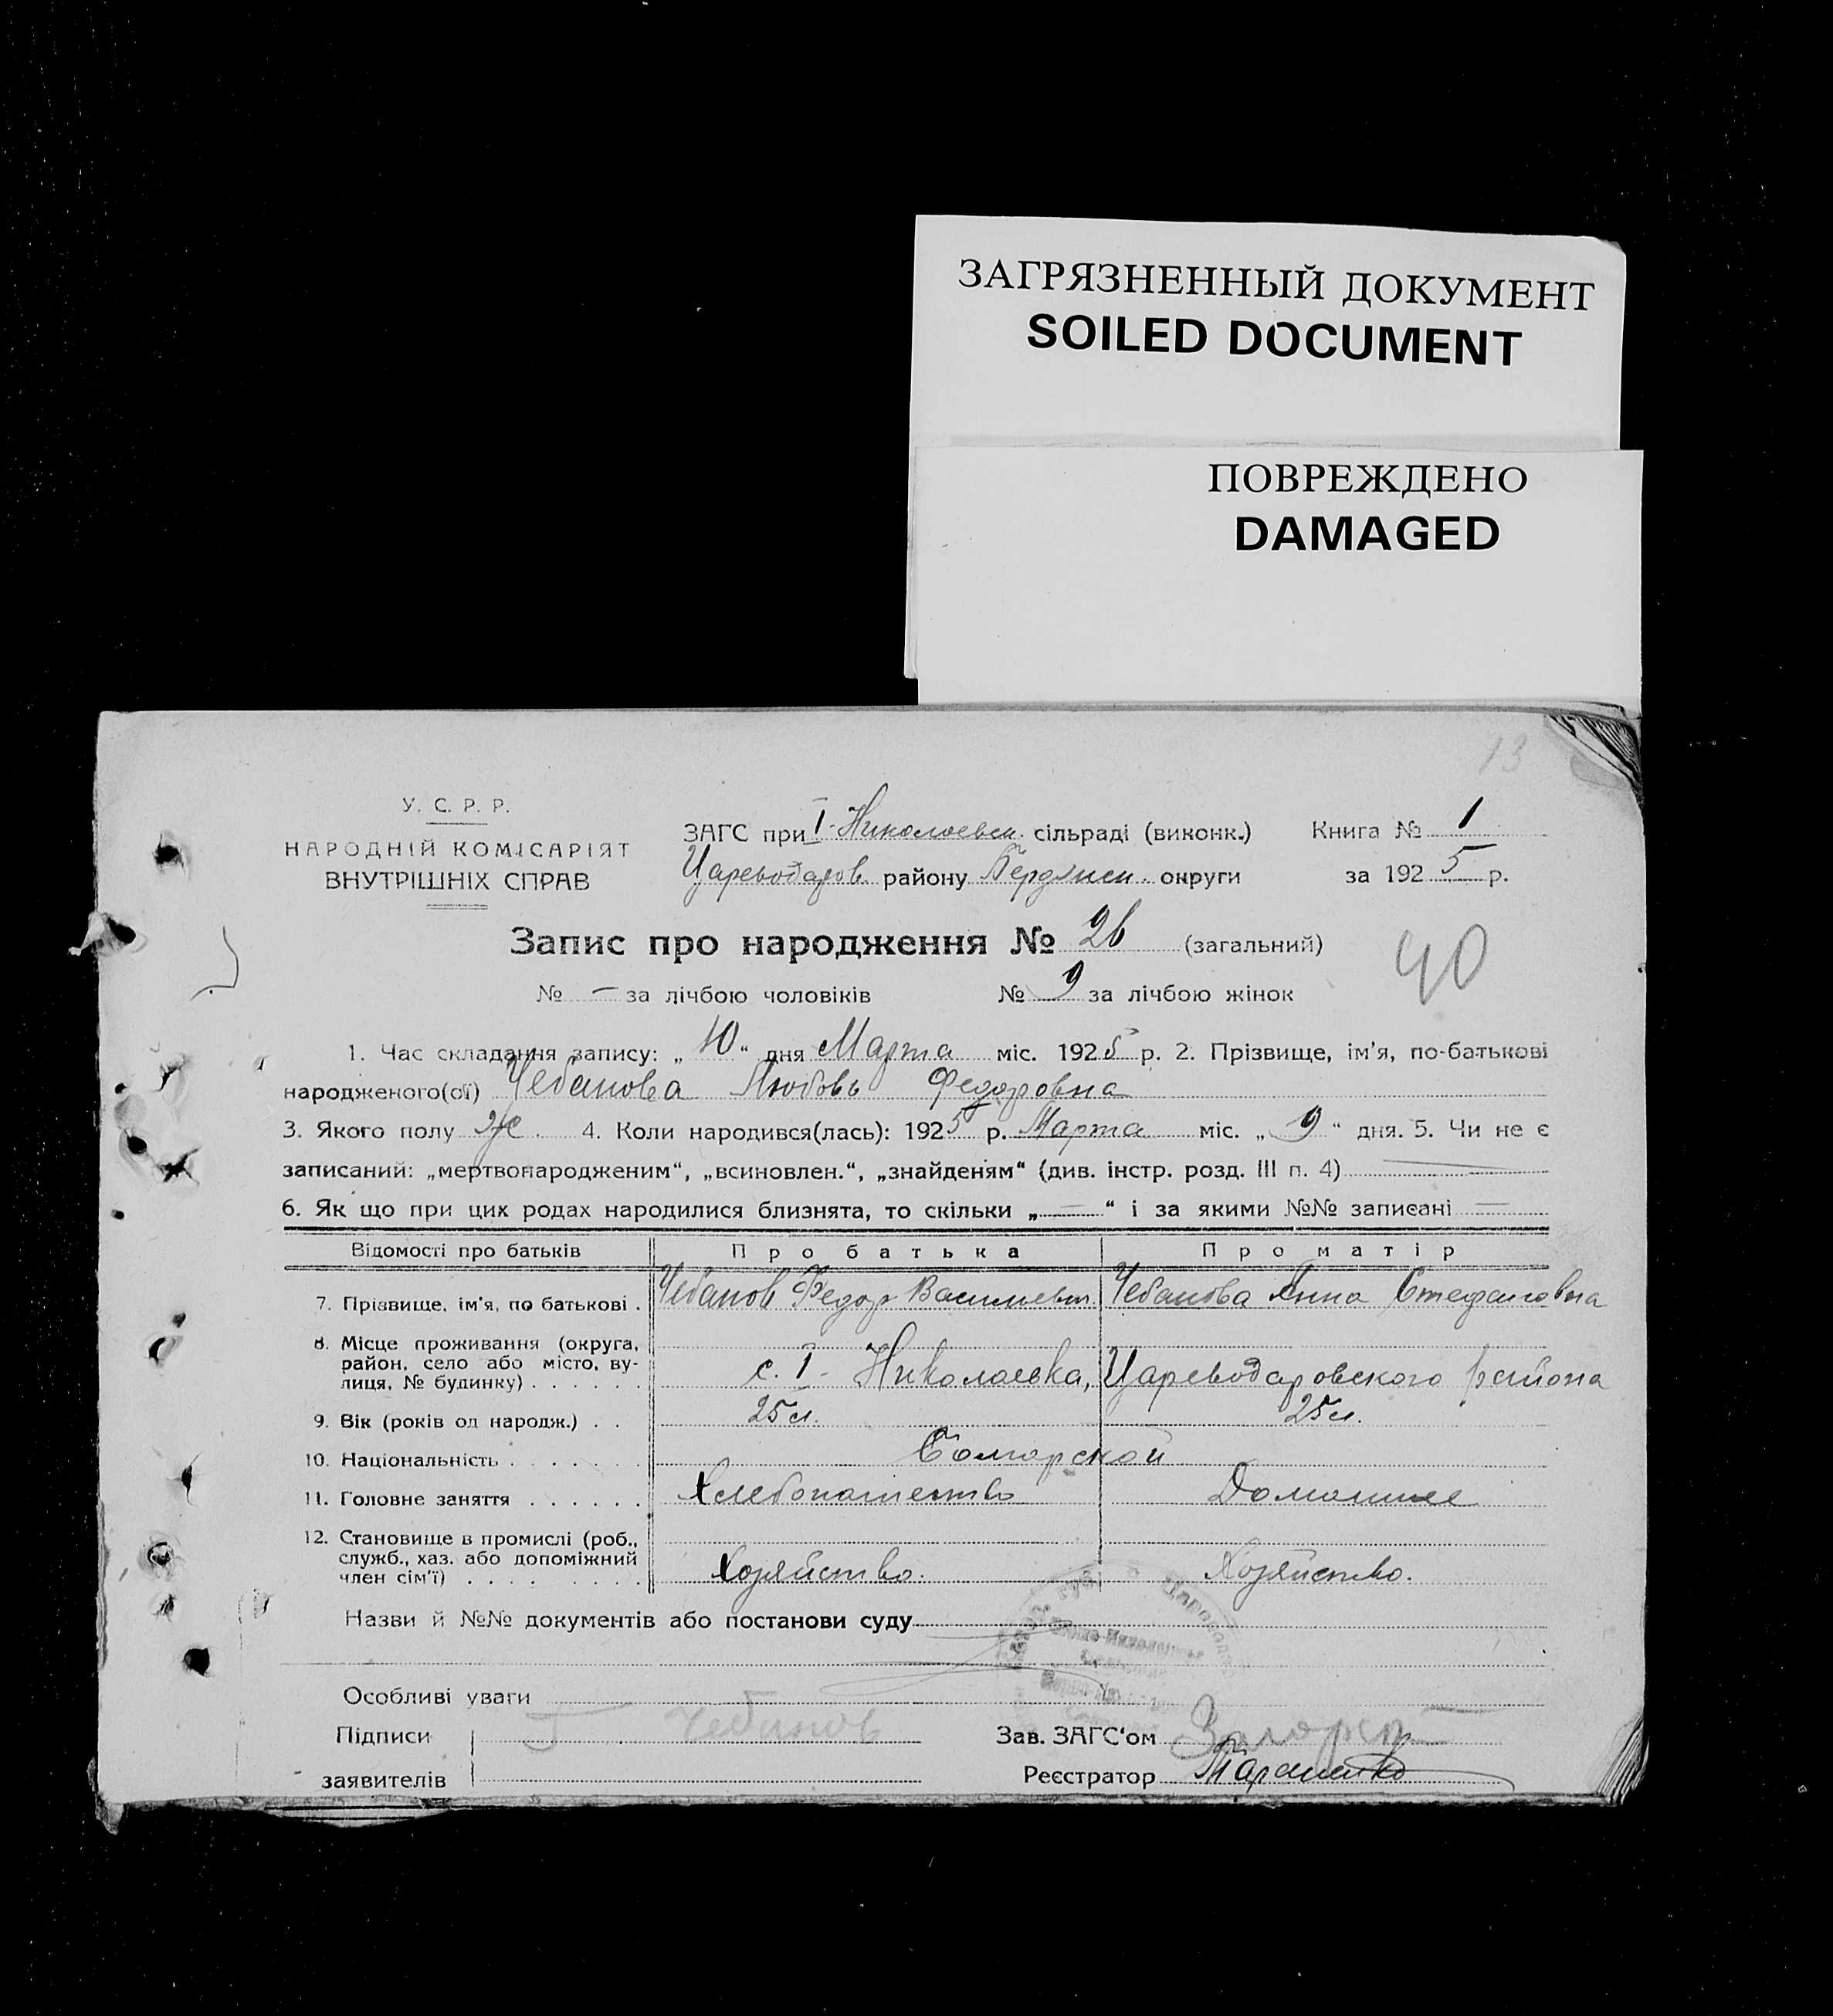 ЗАГРЯЗНЕННЫЙ ДОКУМЕНТ
SOILED DOCUMENT
ПОВРЕЖДЕНО
DAMAGED
13
У. С. Р. Р.
НАРОДНІЙ КОМІСАРІЯТ
ВНУТРІШНІХ СПРАВ
ЗАГС при I-Николаевск. сільраді (виконк.) Книга № 1
Цареводаров. району Бердянск. округи за 1925 р.
Запис про народження № 26 (загальний)
40
№ — за лічбою чоловіків № 9 за лічбою жінок
1. Час складання запису: „10“ дня Марта міс. 1925 р. 2. Прізвище, ім'я, по-батькові
народженого(ої) Чебанова Любовь Федоровна
3. Якого полу ж. 4. Коли народився(лась): 1925 р. Марта міс. „9“ дня. 5. Чи не є
записаний: „мертвонародженим“, „всиновлен.“, „знайденям“ (див. інстр. розд. III п. 4) —
6. Як що при цих родах народилися близнята, то скільки „—“ і за якими №№ записані —
Відомості про батьків Про батька Про матір
7. Прізвище, ім'я, по батькові . Чебанов Федор Васильевич Чебанова Анна Стефановна
8. Місце проживання (округа,
район, село або місто, ву-
лиця, № будинку) . . . . . . с. I - Николаевка, Цареводаровского района
9. Вік (років од народж.) . . 25 л. 25 л.
10. Національність . . . . . . . Болгарской
11. Головне заняття . . . . . . Хлебопашество Домашнее
12. Становище в промислі (роб.,
служб., хаз. або допоміжний
член сім'ї) . . . . . . . . . Хозяйство. Хозяйство.
Назви й №№ документів або постанови суду
Особливі уваги
Підписи Чебанов Зав. ЗАГС'ом
заявителів Реєстратор